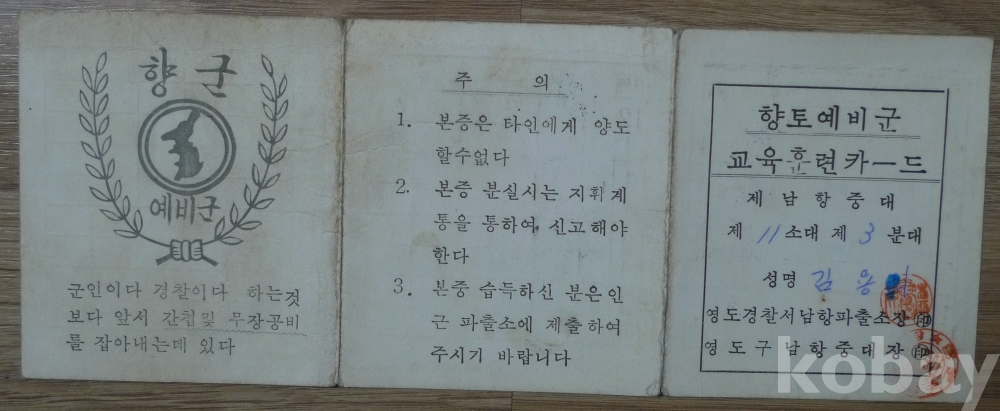 향군
예비군
군인이다 경찰이다 하는것
보다 앞서 간첩및 무장공비
를 잡아내는데 있다
주 의
1. 본증은 타인에게 양도
할수없다
2. 본증 분실시는 지휘계
통을 통하여 신고해야
한다
3. 본증 습득하신 분은 인
근 파출소에 제출하여
주시기 바랍니다
향토예비군
교육훈련카ー드
제 남항중대
제 11 소대 제 3 분대
성명 김 용
영도경찰서남항파출소장 ㊞
영도구남항중대장 ㊞
kobay